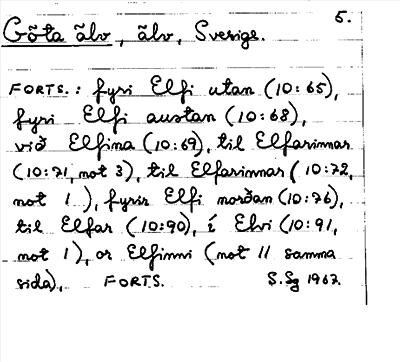 5.
Göta älv, älv, Sverige.
FORTS.: fyri Elfi utan (10:65),
fyri Elfi austan (10:68),
við Elfina (10:69), til Elfarinnar
(10:71, not 3), til Elfarinnar (10:72,
not 1), fyrir Elfi norðan (10:76),
til Elfar (10:90), í Elvi (10:91,
not 1), or Elfinni (not 11 samma
sida), FORTS. S.Sg 1967.